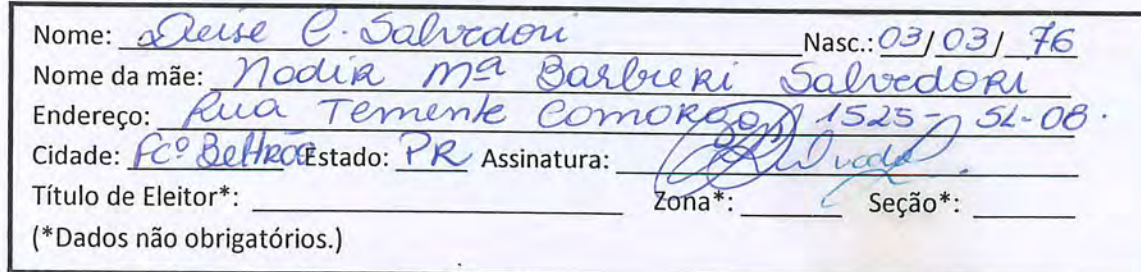 Nome: Deise C. Salvadori Nasc.: 03/03/76
Nome da mãe: Nadir Mª Barbieri Salvadori
Endereço: Rua Tenente Camargo, 1525 - SL-08.
Cidade: Fcº Beltrão Estado: PR Assinatura:
Título de Eleitor*: Zona*: Seção*:
(*Dados não obrigatórios.)